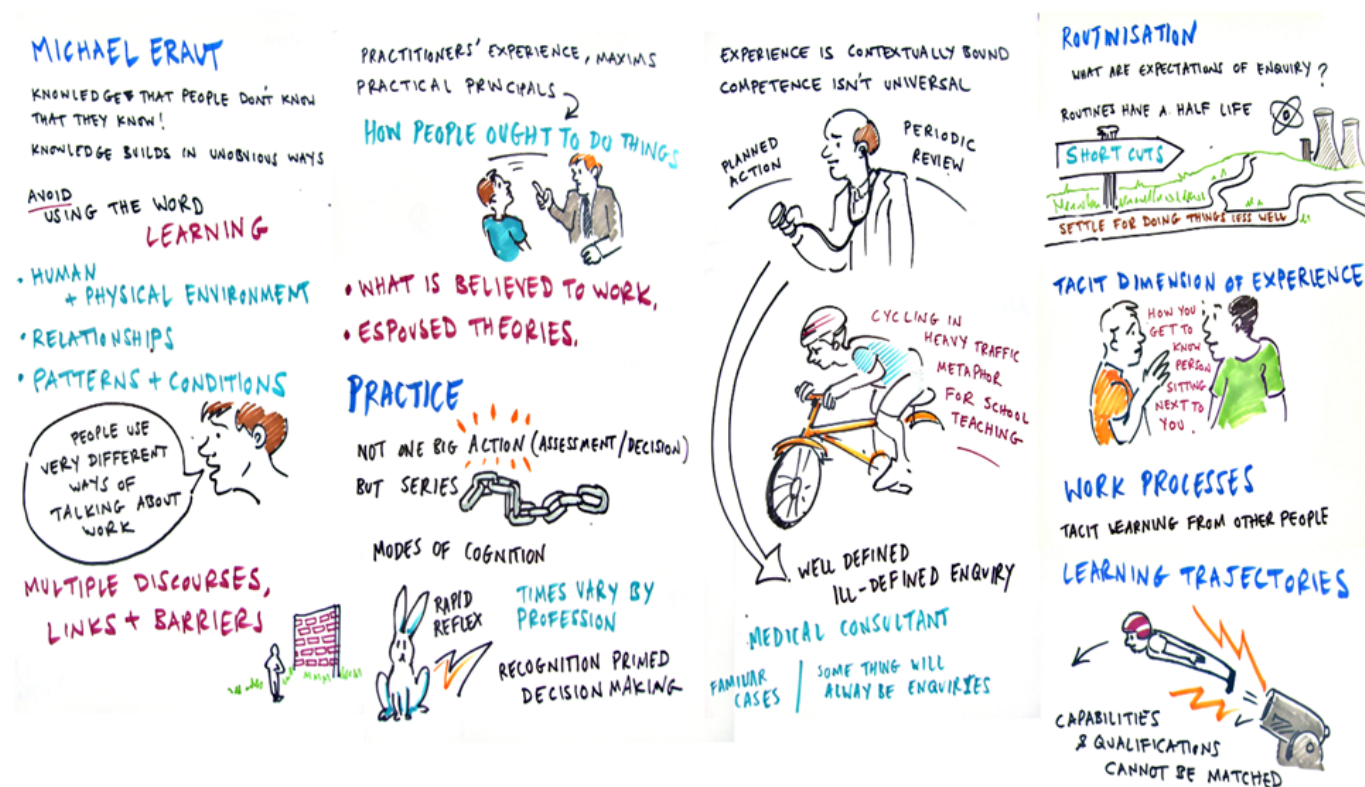 MICHAEL ERAUT
KNOWLEDGE THAT PEOPLE DON'T KNOW
THAT THEY KNOW!
KNOWLEDGE BUILDS IN UNOBVIOUS WAYS
AVOID
USING THE WORD
LEARNING
• HUMAN
+ PHYSICAL ENVIRONMENT
• RELATIONSHIPS
• PATTERNS + CONDITIONS
PEOPLE USE
VERY DIFFERENT
WAYS OF
TALKING ABOUT
WORK
MULTIPLE DISCOURSES,
LINKS + BARRIERS
PRACTITIONERS' EXPERIENCE, MAXIMS
PRACTICAL PRINCIPALS
HOW PEOPLE OUGHT TO DO THINGS
• WHAT IS BELIEVED TO WORK,
• ESPOUSED THEORIES.
PRACTICE
NOT ONE BIG ACTION (ASSESSMENT/DECISION)
BUT SERIES
MODES OF COGNITION
RAPID
REFLEX
TIMES VARY BY
PROFESSION
RECOGNITION PRIMED
DECISION MAKING
EXPERIENCE IS CONTEXTUALLY BOUND
COMPETENCE ISN'T UNIVERSAL
PLANNED
ACTION
PERIODIC
REVIEW
CYCLING IN
HEAVY TRAFFIC
METAPHOR
FOR SCHOOL
TEACHING
WELL DEFINED
ILL-DEFINED ENQUIRY
MEDICAL CONSULTANT
FAMILIAR
CASES
SOME THING WILL
ALWAY BE ENQUIRIES
ROUTINISATION
WHAT ARE EXPECTATIONS OF ENQUIRY?
ROUTINES HAVE A HALF LIFE
SHORT CUTS
SETTLE FOR DOING THINGS LESS WELL
TACIT DIMENSION OF EXPERIENCE
HOW YOU
GET TO
KNOW
PERSON
SITTING
NEXT TO
YOU.
WORK PROCESSES
TACIT LEARNING FROM OTHER PEOPLE
LEARNING TRAJECTORIES
CAPABILITIES
& QUALIFICATIONS
CANNOT BE MATCHED